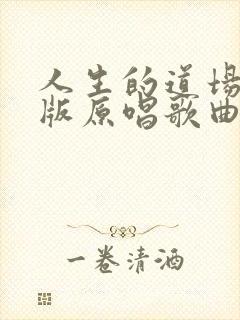 人生的道场
版原唱歌曲
一卷清酒